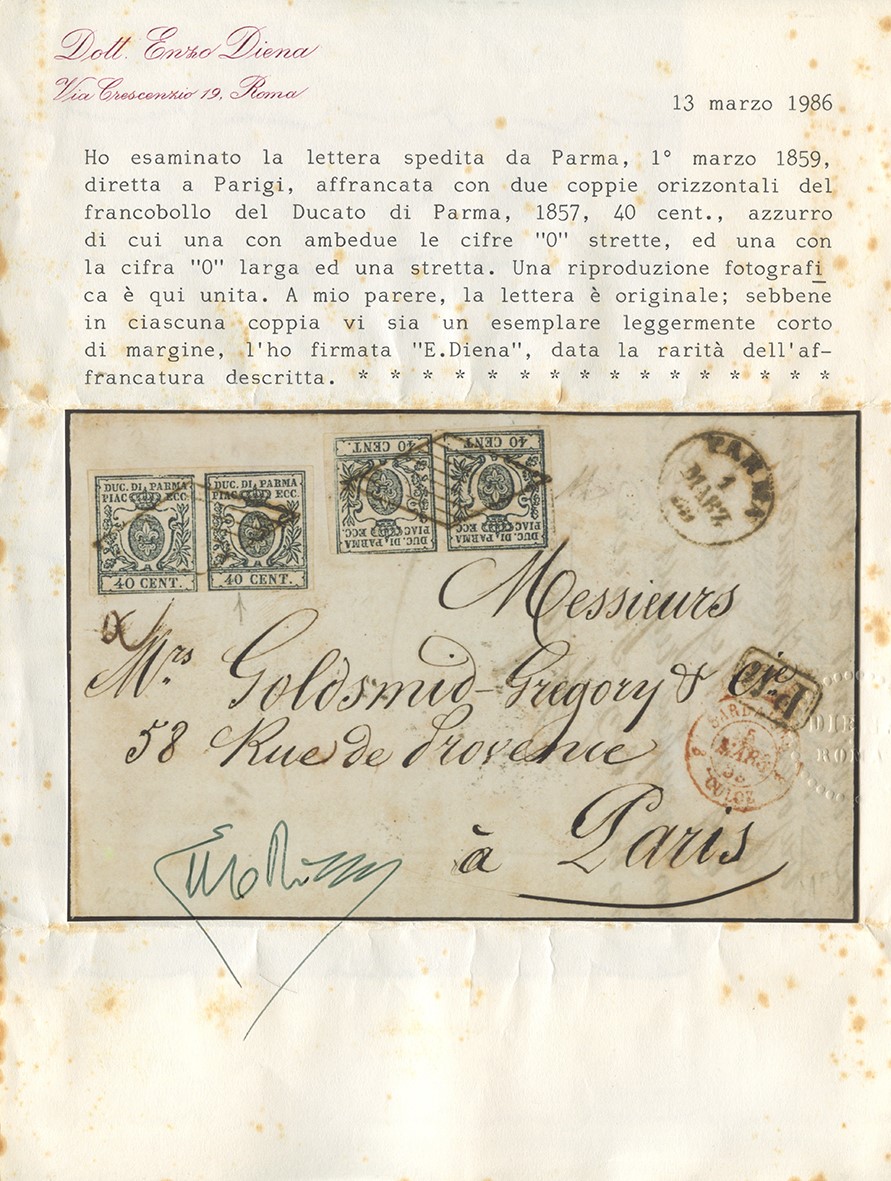 Dott. Enzo Diena
Via Crescenzio 19, Roma
13 marzo 1986
Ho esaminato la lettera spedita da Parma, 1° marzo 1859,
diretta a Parigi, affrancata con due coppie orizzontali del
francobollo del Ducato di Parma, 1857, 40 cent., azzurro
di cui una con ambedue le cifre "0" strette, ed una con
la cifra "0" larga ed una stretta. Una riproduzione fotografi
ca è qui unita. A mio parere, la lettera è originale; sebbene
in ciascuna coppia vi sia un esemplare leggermente corto
di margine, l'ho firmata "E.Diena", data la rarità dell'af-
francatura descritta. * * * * * * * * * * * * * * * * *
40 CENT 40 CENT
DUC. DI PARMA PIAC ECC. DUC. DI PARMA PIAC ECC.
DUC. DI PARMA DUC. DI PARMA
PIAC ECC. PIAC ECC.
40 CENT. 40 CENT.
PARMA
1
MARZ
Messieurs
Mrs. Goldsmid-Gregory & Cie
P.D.
58 Rue de Provence
MARS
CULOZ
DIE
ROM
à Paris